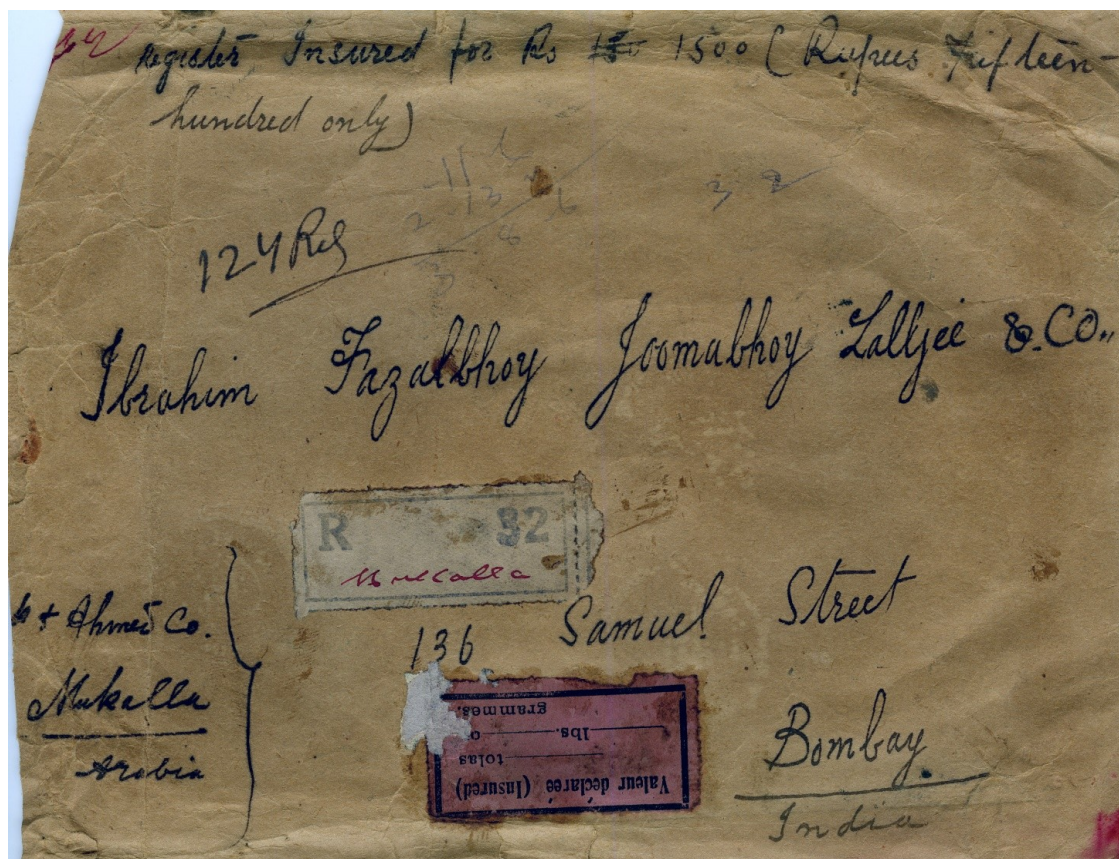 Register Insured for Rs 1500 (Rupees Fifteen-
hundred only)
3 2
124 Rs
Ibrahim Fazalbhoy Joomabhoy Lalljee & CO.,
R 32
Mukalla
136 Samuel Street
& Ahmed Co.
Mukalla
Arabia
Bombay
India
Valeur déclarée (Insured)
tolas
lbs.
grammes.